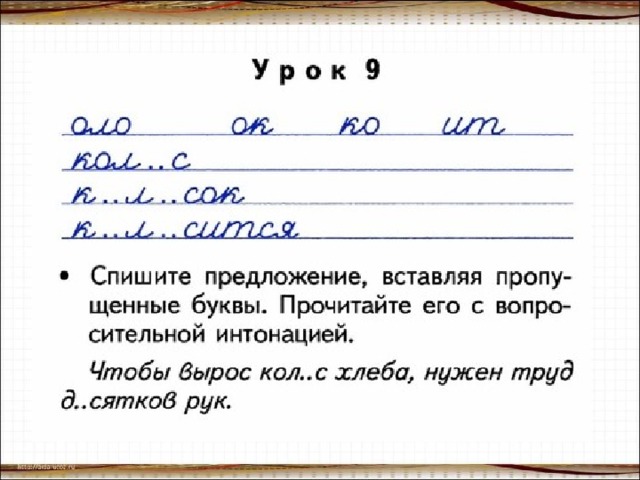 Урок 9
оло ок ко ит
кол..с
к..л..сок
к..л..сится
• Спишите предложение, вставляя пропу-
щенные буквы. Прочитайте его с вопро-
сительной интонацией.
Чтобы вырос кол..с хлеба, нужен труд
д..сятков рук.